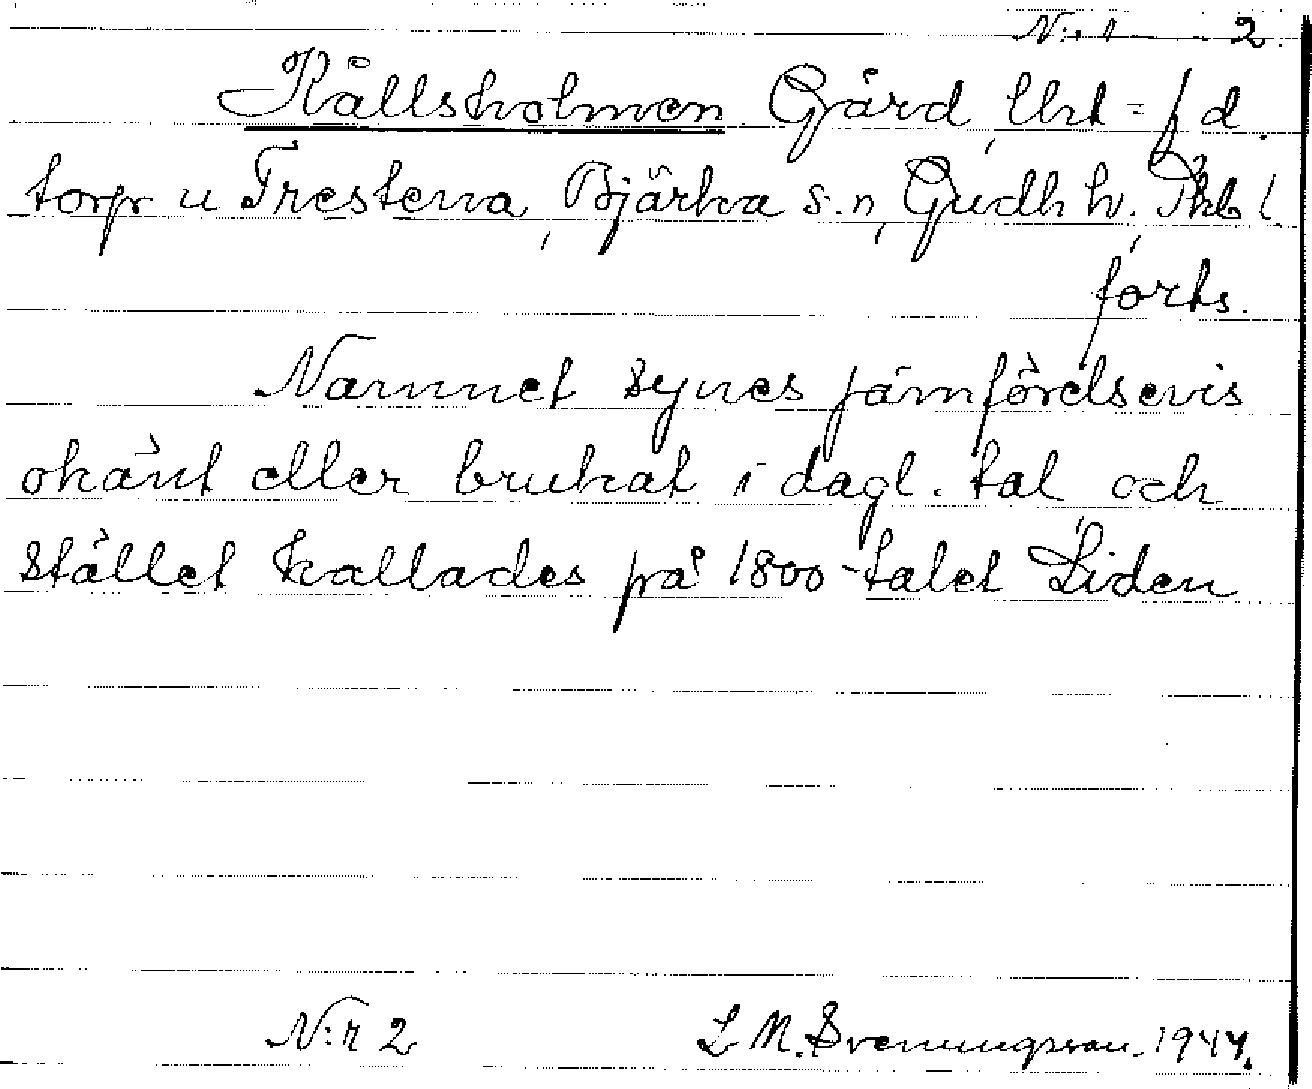 N:r 1 2.
Källsholmen Gård, Urt = f d.
torp u Trestena, Bjärka s.n, Gudh h. Skb l.
forts.
Namnet synes jämförelsevis
okänt eller brukat i dagl. tal och
stället kallades på 1800-talet Liden
N:r 2 L M. Svenungsson. 1944.